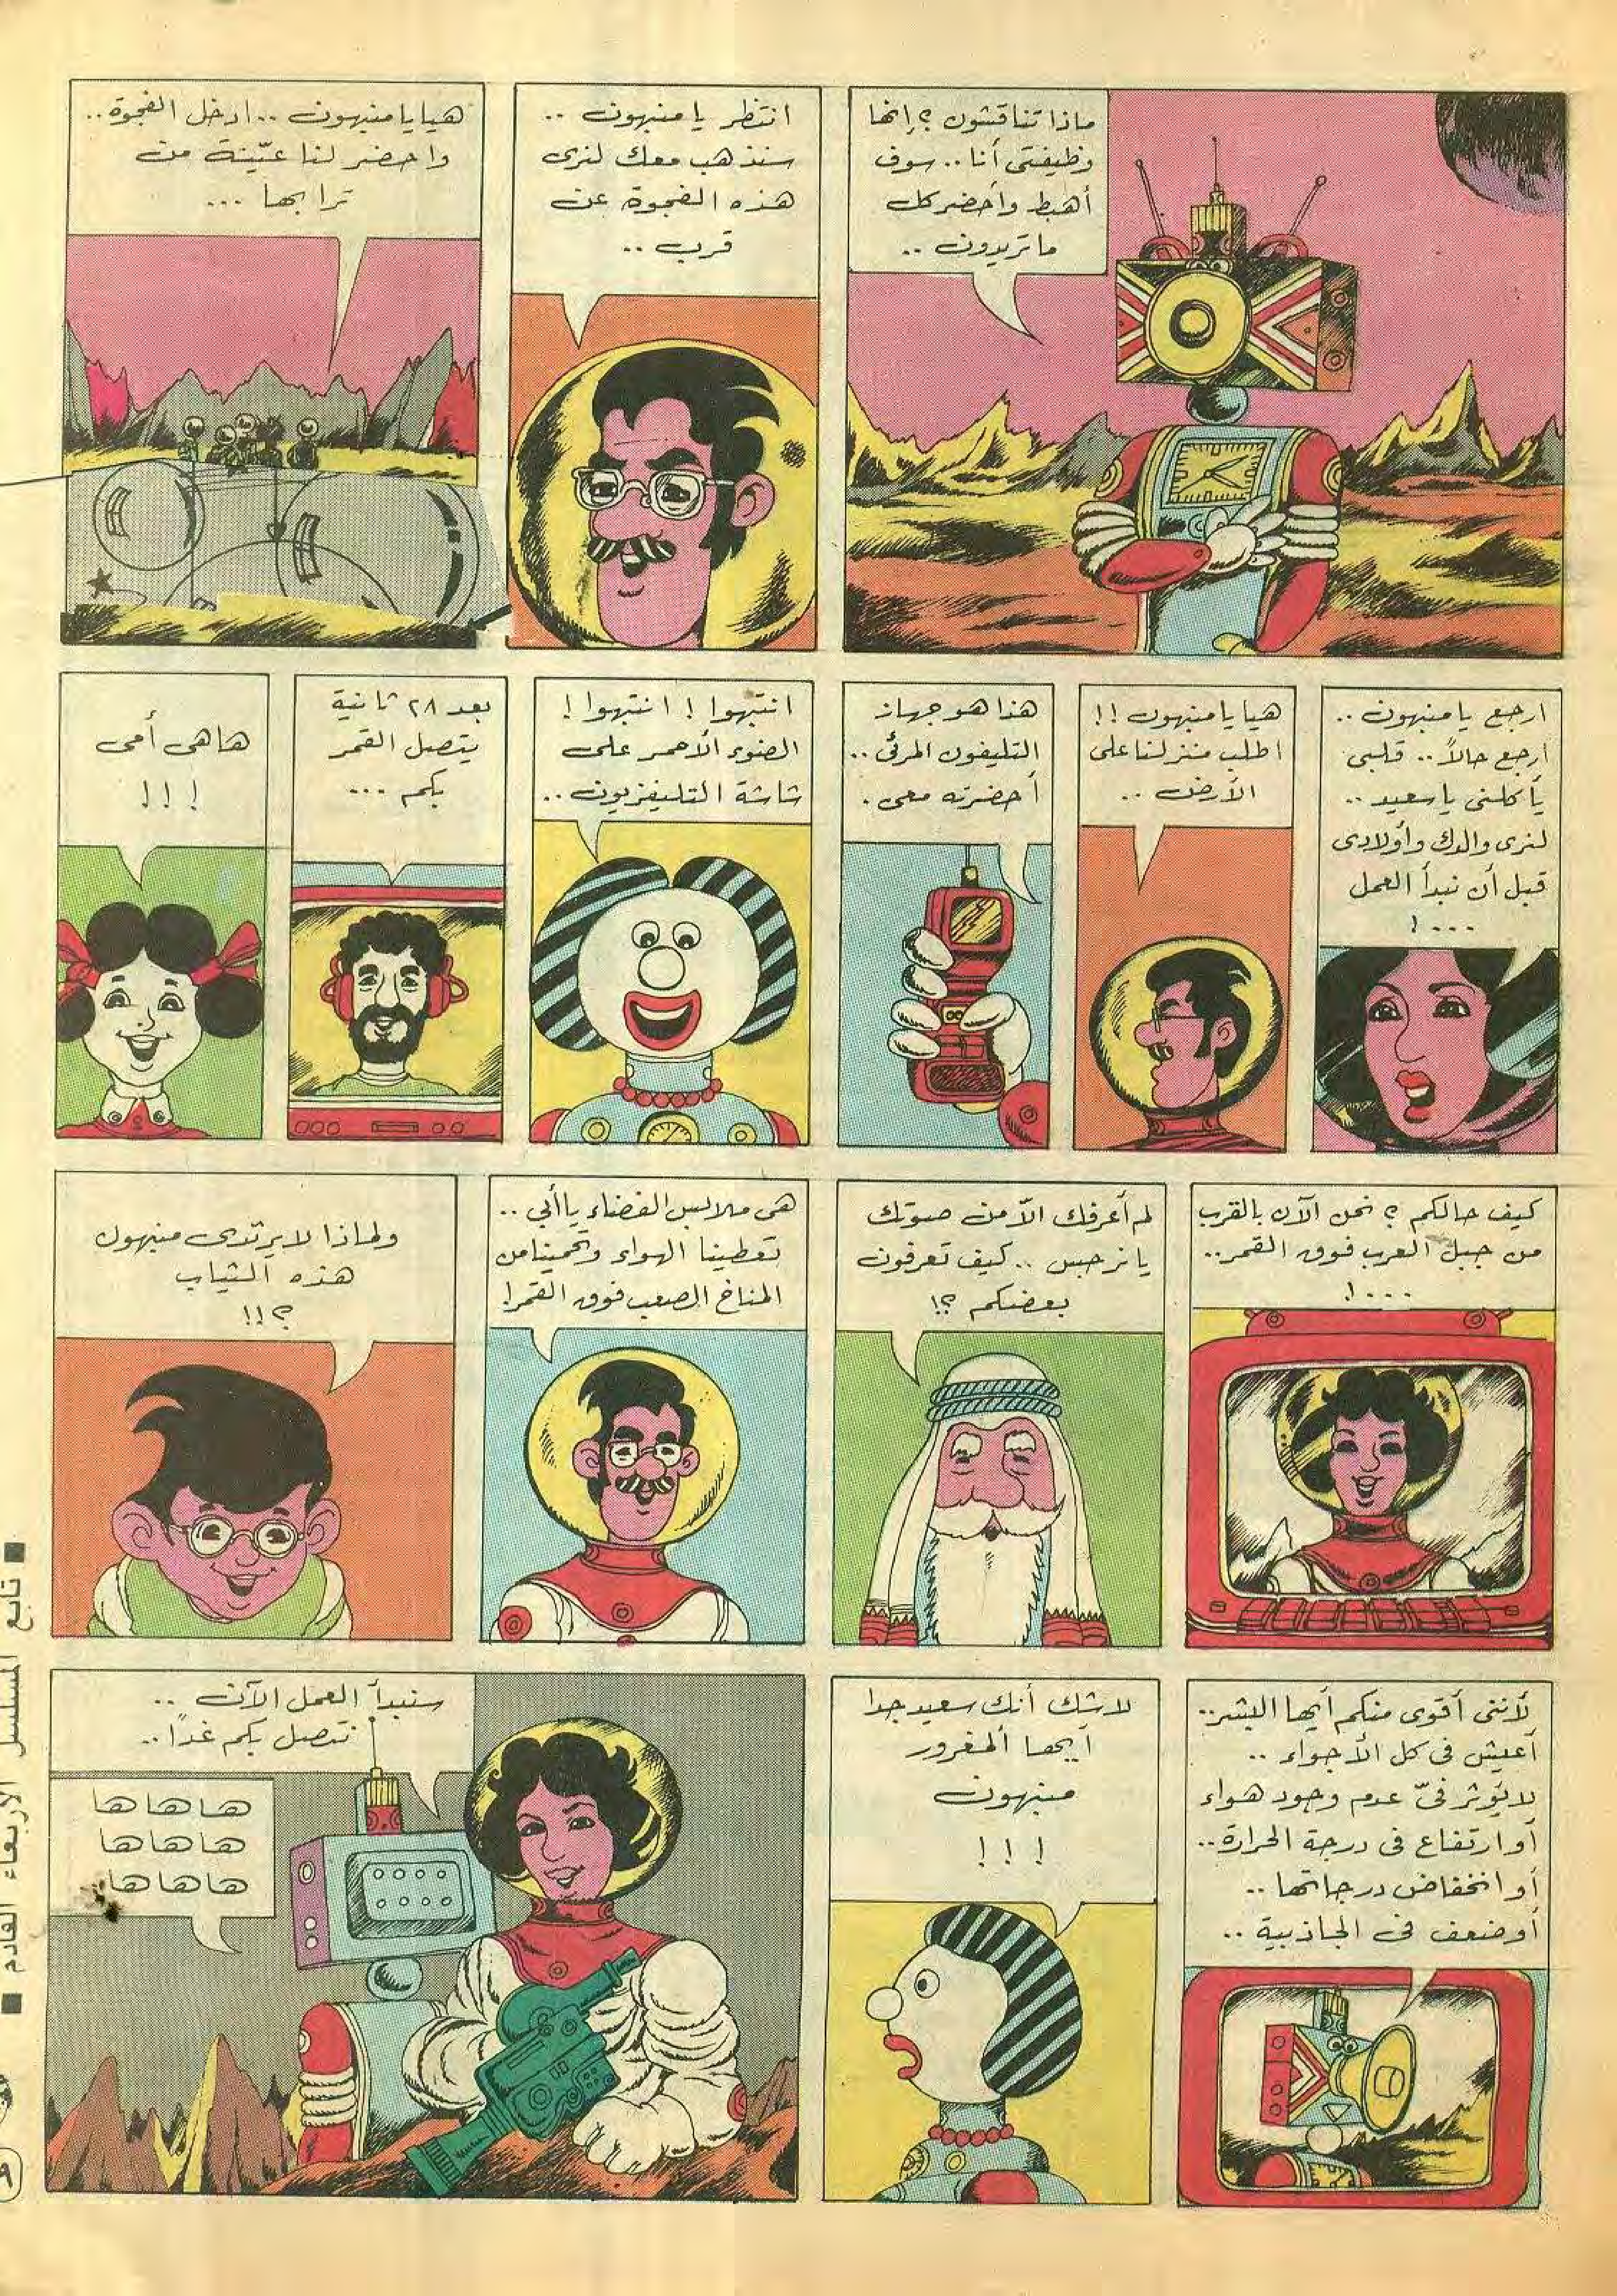 ماذا تناقشون ؟ إنها
وظيفتى أنا .. سوف
أهبط وأحضر كل
ما تريدون ..
انتظر يا منبهون ..
سنذهب معك لنرى
هذه الفجوة عن
قرب ..
هيا يا منبهون .. ادخل الفجوة ..
واحضر لنا عيّنة من
ترابها ...
ارجع يا منبهون ..
ارجع حالاً .. قلبى
يأكلنى يا سعيد ..
لنرى والدك وأولادى
قبل أن نبدأ العمل
... !
هيا يا منبهون !!
اطلب منزلنا على
الأرض ..
هذا هو جهاز
التليفون المرئى ..
أحضرته معى .
انتبهوا ! انتبهوا !
الضوء الأحمر على
شاشة التليفزيون ..
بعد ٢٨ ثانية
يتصل القمر
بكم ...
هاهى أمى
!!!
كيف حالكم ؟ نحن الآن بالقرب
من جبل العرب فوق القمر ..
... !
لم أعرفك الاّ من صوتك
يا نرجس .. كيف تعرفون
بعضكم ؟!
هى ملابس الفضاء يا أبي ..
تعطينا الهواء وتحمينا من
المناخ الصعب فوق القمر !
ولماذا لا يرتدى منبهون
هذه الثياب
؟!!
لأننى أقوى منكم أيها البشر ..
أعيش فى كل الأجواء ..
لا يؤثر فىّ عدم وجود هواء
أو ارتفاع فى درجة الحرارة ..
أو انخفاض درجاتها ..
أو ضعف فى الجاذبية ..
لا شك أنك سعيد جدا
أيها المغرور
منبهون
!!!
سنبدأ العمل الآن ..
نتصل بكم غدًا ..
ها ها ها
ها ها ها
ها ها ها
■ تابع المسلسل الأربعاء القادم ■